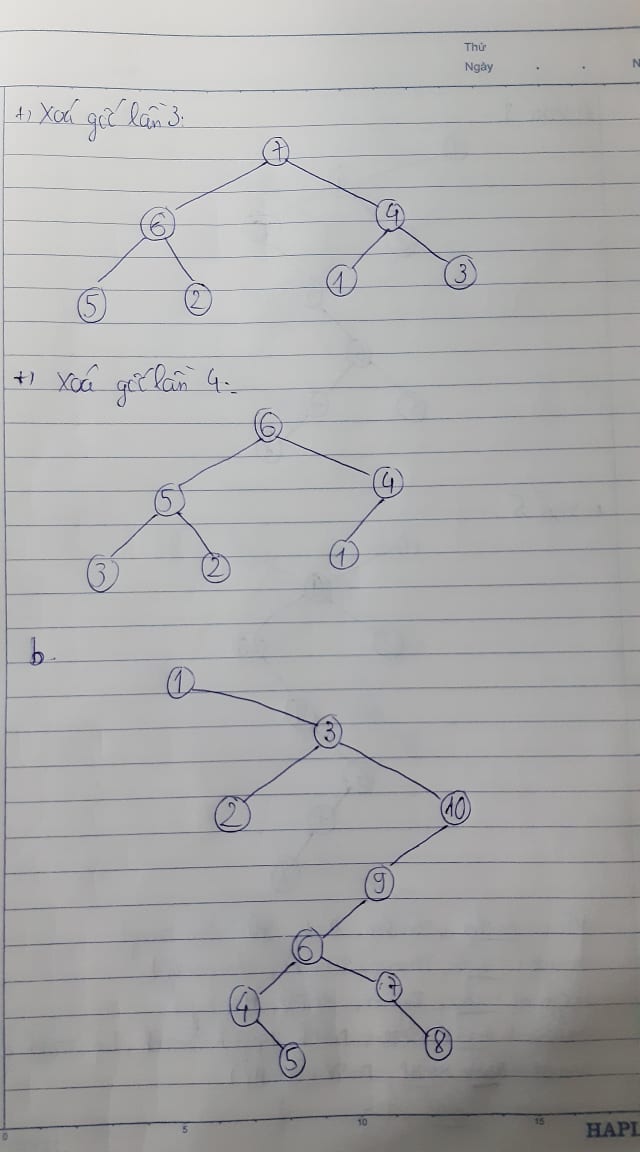 Thứ
Ngày . . N
+) Xoá gốc lần 3:
7
6 4
5 2 1 3
+) Xoá gốc lần 4:
6
5 4
3 2 1
b.
1
3
2 10
9
6
4 7
5 8
0 5 10 15
HAPL